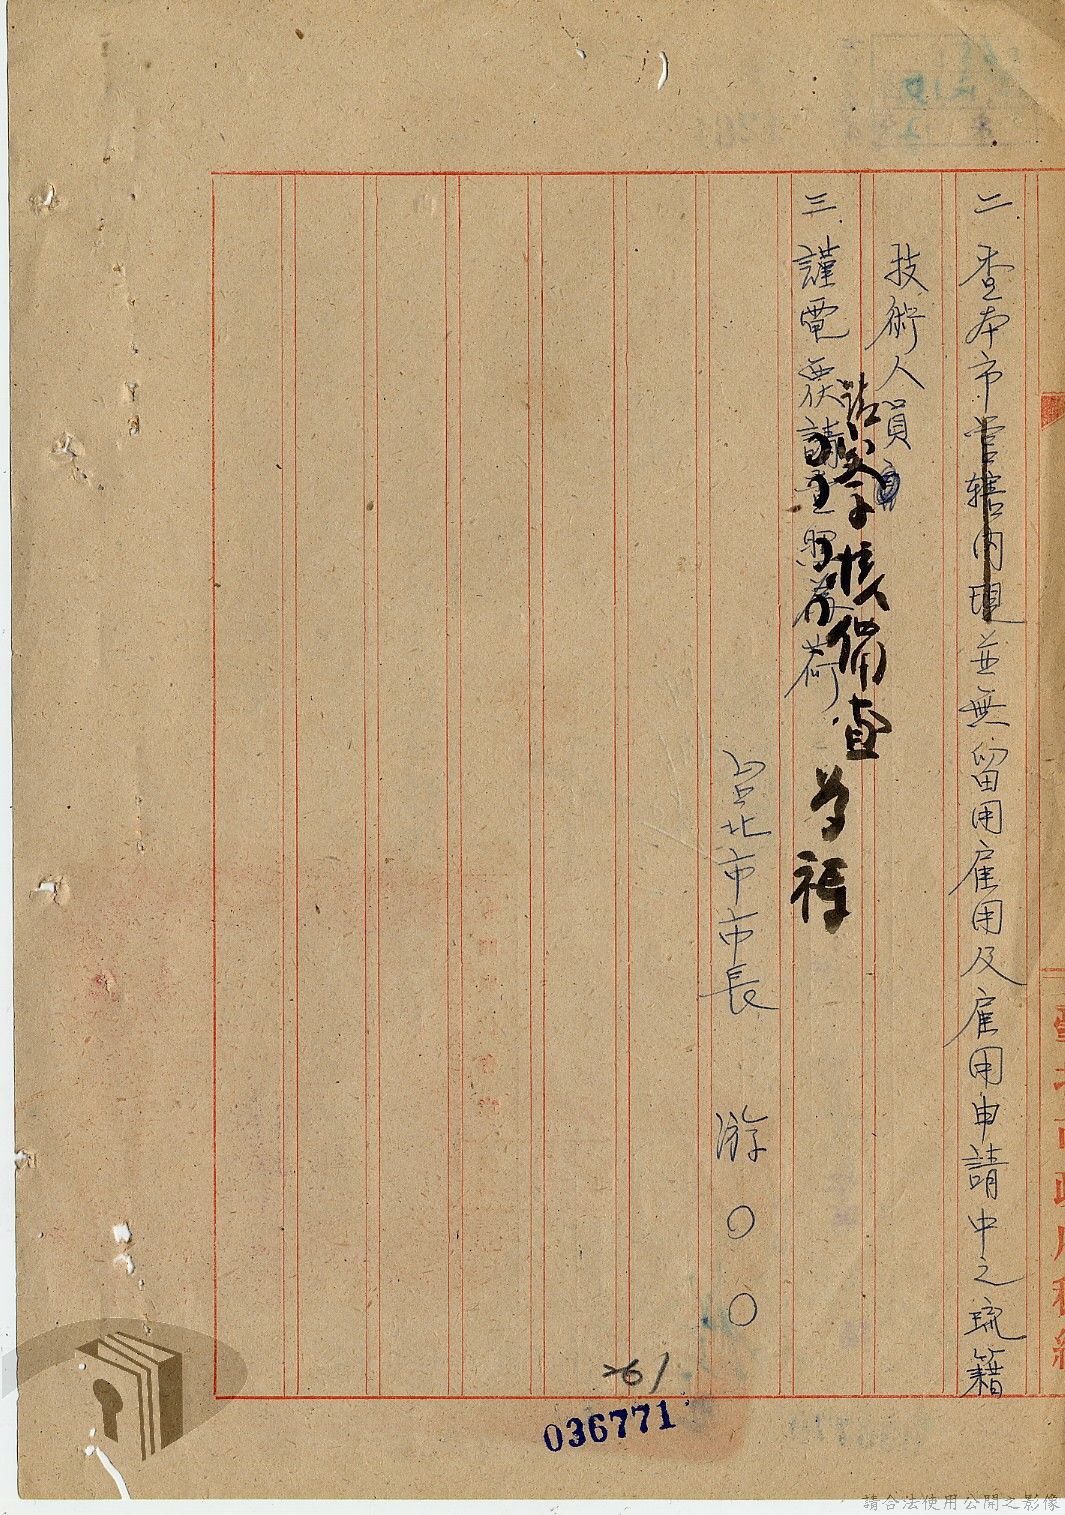 二、查本市管轄內現並無留用雇用及雇用申請中之琉籍
技術人員
請鑒核備查為禱
三、謹電覆請查照為荷
台北市市長 游○○
261
036771
請合法使用公開之影像